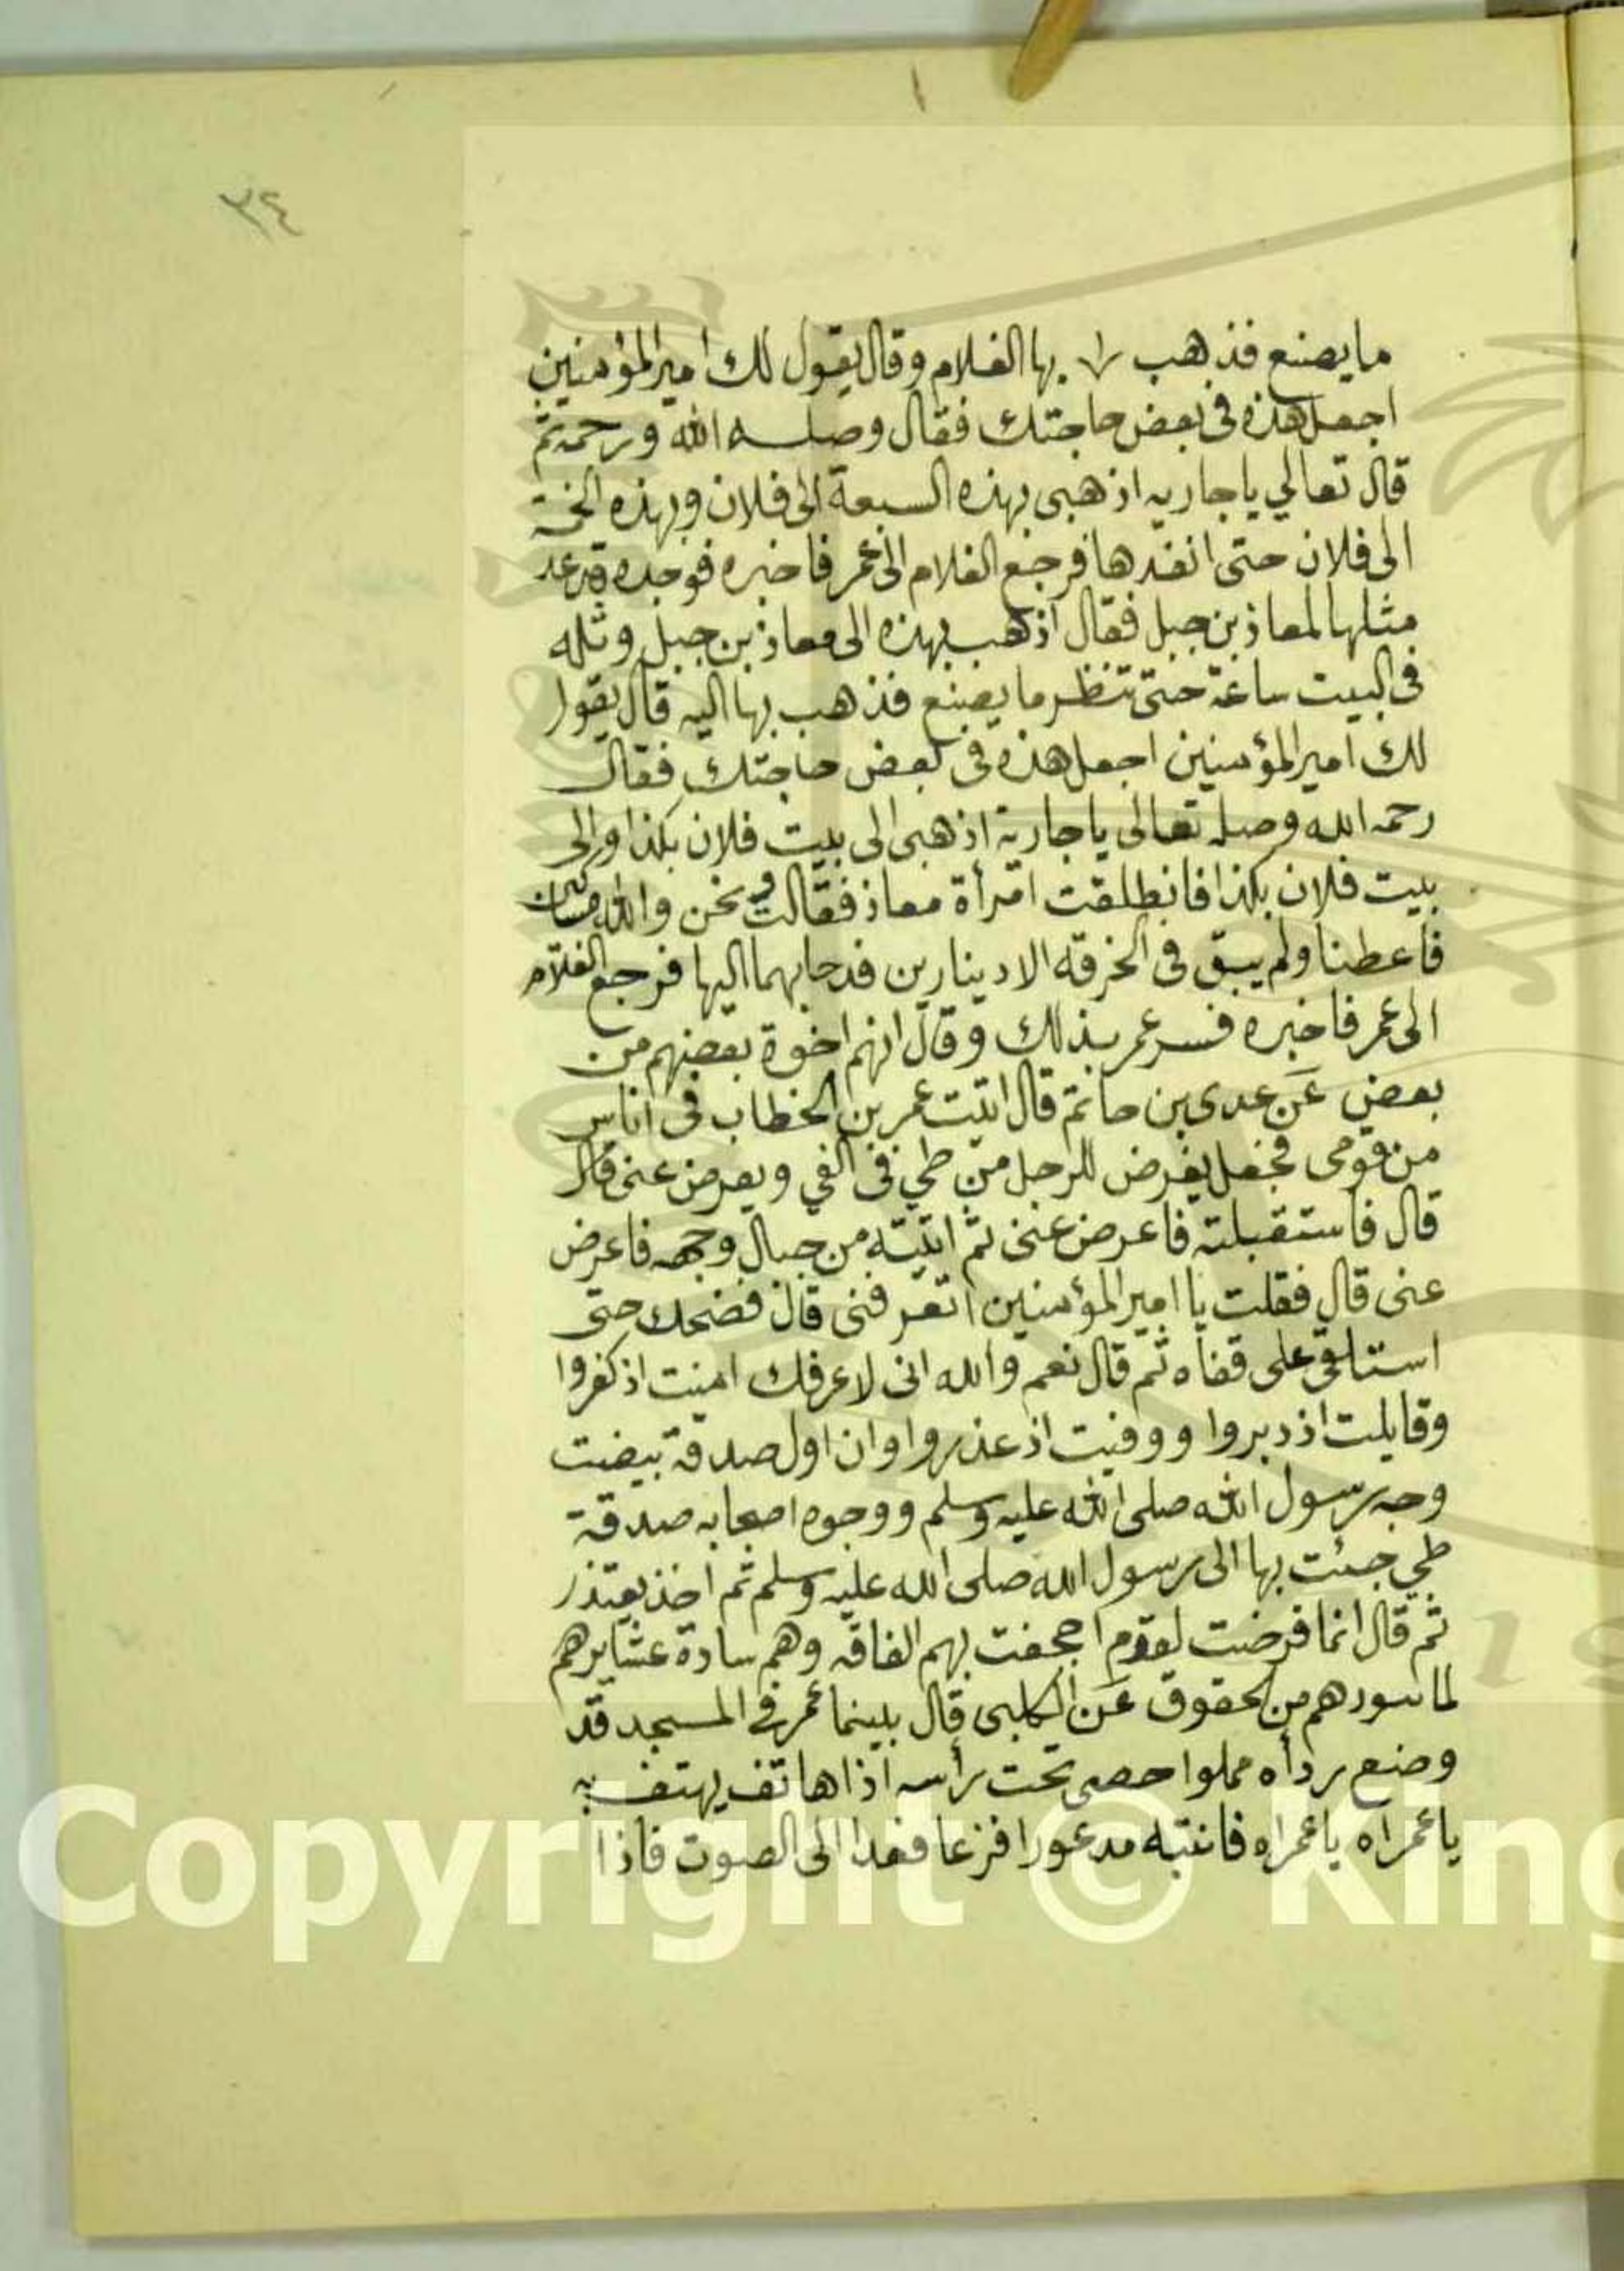 ٣٤
ما يصنع فذهب بها الغلام وقال يقول لك امير المؤمنين
اجعل هذه فى بعض حاجتك فقال وصله الله ورحمه ثم
قال تعالي يا جاريه اذهبى بهذه السبعة الى فلان وبهذه الخمسة
الى فلان حتى انفدها فرجع الغلام الى عمر فاخبره فوجده قد عد
مثلها لمعاذ بن جبل فقال اذهب بهذه الى معاذ بن جبل وتله
فى البيت ساعة حتى تنظر ما يصنع فذهب بها اليه قال يقول
لك امير المؤمنين اجعل هذه فى بعض حاجتك فقال
رحمه الله وصله تعالى يا جارية اذهبى الى بيت فلان بكذا والى
بيت فلان بكذا فانطلقت امرأة معاذ فقالت ونحن والله مساكين
فاعطنا ولم يبق فى الخرقه الا دينارين فدحا بهما اليها فرجع الغلام
الى عمر فاخبره فسر عمر بذلك وقال انهم اخوة بعضهم من
بعض عن عدى بن حاتم قال اتيت عمر بن الخطاب فى اناس
من قومى فجعل يفرض للرجل من طي فى الفي ويعرض عنى قال
قال فاستقبلته فاعرض عنى ثم اتيته من حيال وجهه فاعرض
عنى قال فقلت يا امير المؤمنين اتعرفنى قال فضحك حتى
استلقى على قفاه ثم قال نعم والله انى لاعرفك امنت اذ كفروا
وقابلت اذ دبروا ووفيت اذ عذروا وان اول صدقة بيضت
وجه رسول الله صلى الله عليه وسلم ووجوه اصحابه صدقة
طي جئت بها الى رسول الله صلى الله عليه وسلم ثم اخذ يعتذر
ثم قال انما فرضت لقوم اجحفت بهم الفاقه وهم سادة عشايرهم
لما سودهم من الحقوق عن الكلبى قال بينما عمر في المسجد قد
وضع ردأه مملوا حصى تحت رأسه اذا هاتف يهتف به
يا عمراه يا عمراه فانتبه مدعورا فزعا فغدا الى الصوت فاذا
Copyright © King